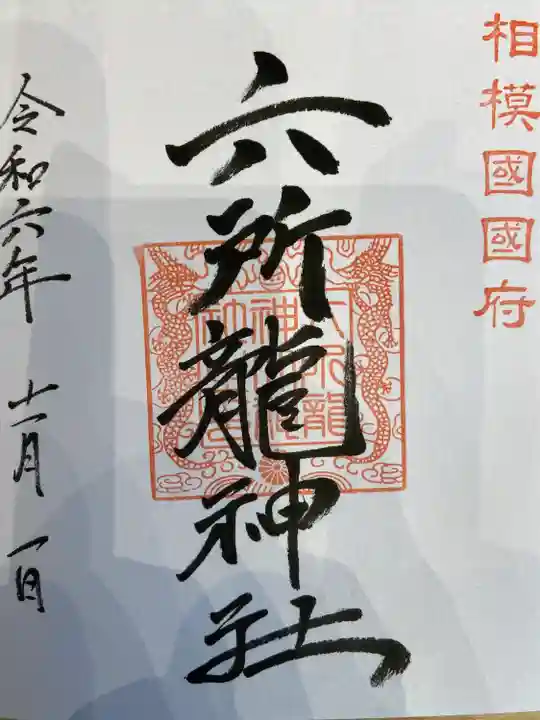 相模國國府
六所龍神社
令和六年 十一月 一日